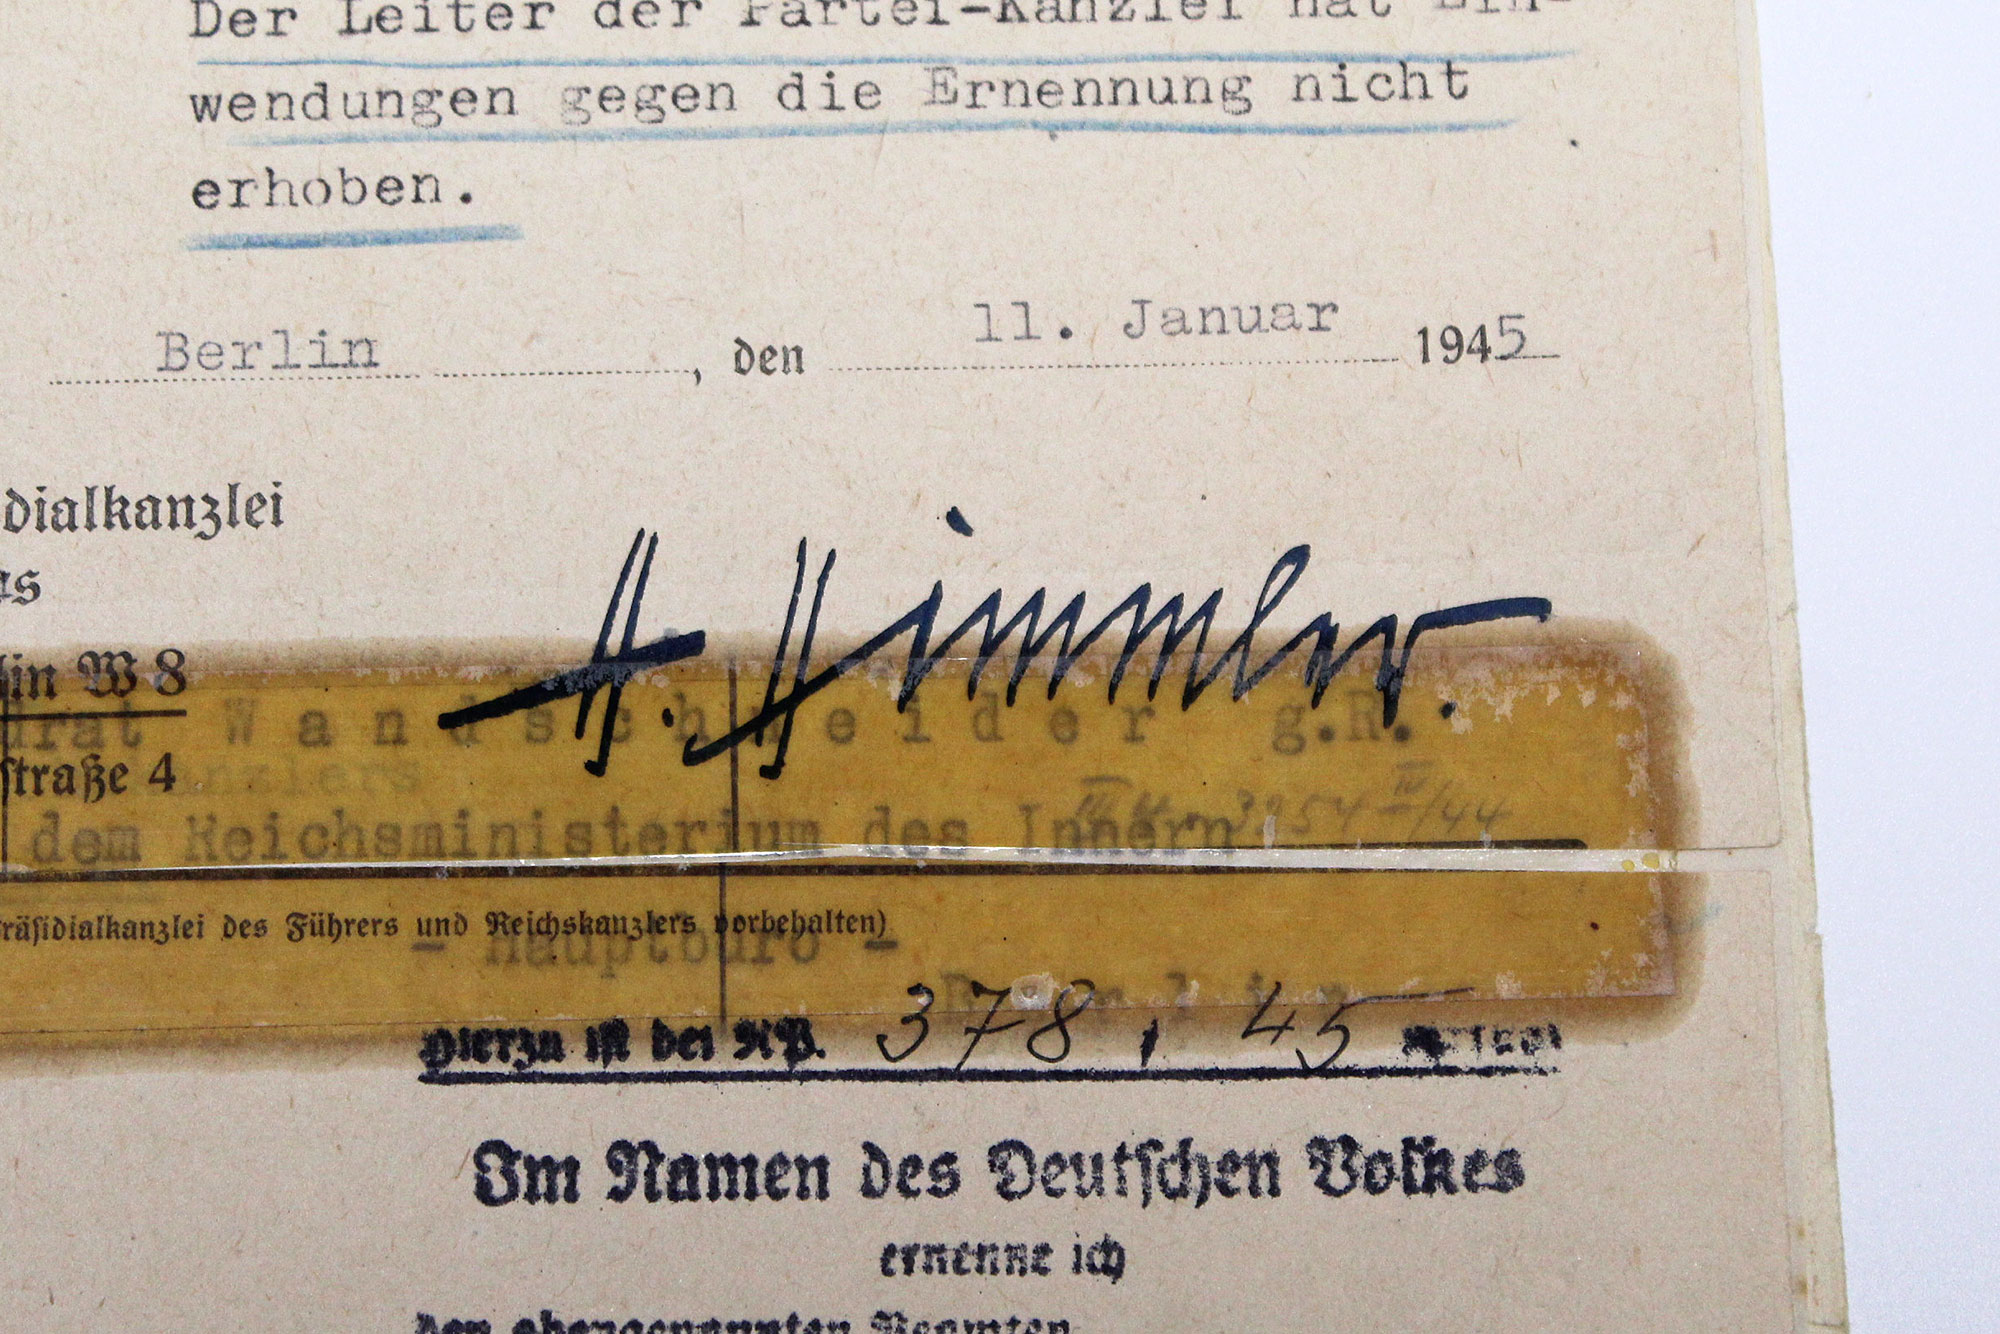 Der Leiter der Partei-Kanzlei hat Ein-
wendungen gegen die Ernennung nicht
erhoben.
Berlin, den 11. Januar 1945
dialkanzlei
H. Himmler.
lin W 8
drat Wandschneider g.R.
straße 4
anzlers
3254 IV/44
dem Reichsministerium des Innern
räsidialkanzlei des Führers und Reichskanzlers vorbehalten)
- Hauptbüro -
Hierzu ist bei RP. 378, 45
Im Namen des Deutschen Volkes
ernenne ich
den obengenannten Beamten